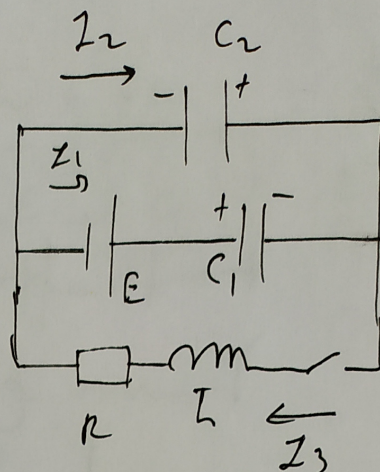 I₂ C₂
- +
I₁
+ -
E C₁
R L I₃